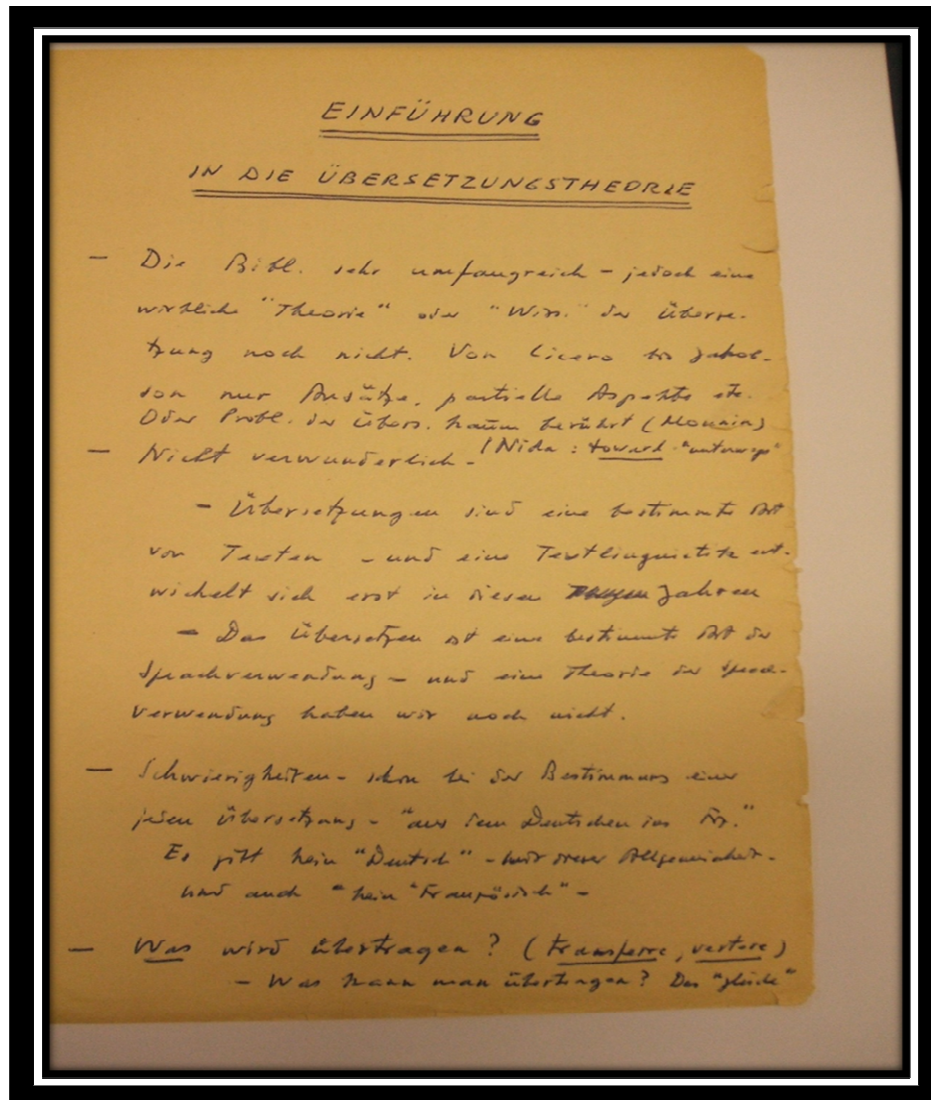 EINFÜHRUNG
IN DIE ÜBERSETZUNGSTHEORIE
— Die Bibl. sehr umfangreich – jedoch eine
wirkliche "Theorie" oder "Wiss." der Überse-
tzung noch nicht. Von Cicero bis Jakob-
son nur Ansätze, partielle Aspekte etc.
Oder Probl. der Übers. kaum berührt (Mounin)
— Nicht verwunderlich – (Nida: toward - "unterwegs"
– Übersetzungen sind eine bestimmte Art
von Texten – und eine Textlinguistik ent-
wickelt sich erst in diesen Jahren
– Das Übersetzen ist eine bestimmte Art der
Sprachverwendung – und eine Theorie der Sprach-
verwendung haben wir noch nicht.
— Schwierigkeiten – schon bei der Bestimmung einer
jeden Übersetzung – "aus dem Deutschen ins Frz."
Es gibt kein "Deutsch" – mit dieser Allgemeinheit –
und auch "kein "Französisch" –
— Was wird übertragen? (transferre, vertere)
– Was kann man übertragen? Das "gleiche"